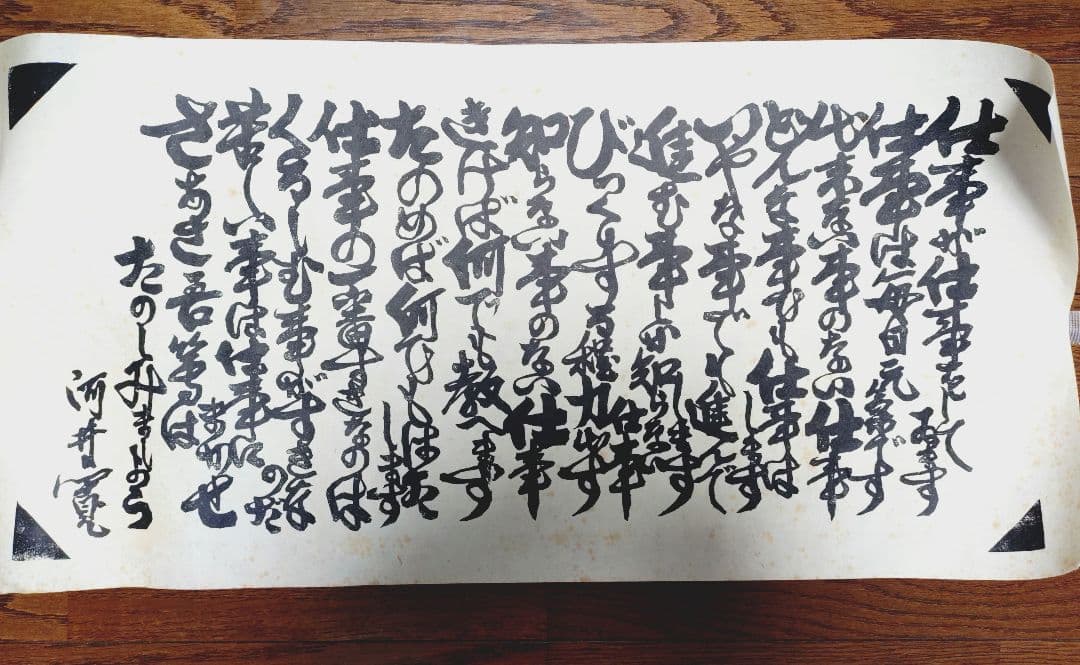 仕事が仕事をして
おます
仕事は毎日元気です
出来ない事のない仕事
どんな事でも仕事は
します
いやな事でも進んで
進む事しか知らない
仕事
びっくりする程力出す
知らない事のない仕事
きけば何でも教へます
たのめば何でもします
仕事の一番すきなのは
くるしむ事がすきなのだ
苦しい事は仕事に
まかせ
さあさ吾等は
たのしみましょう
河井寛